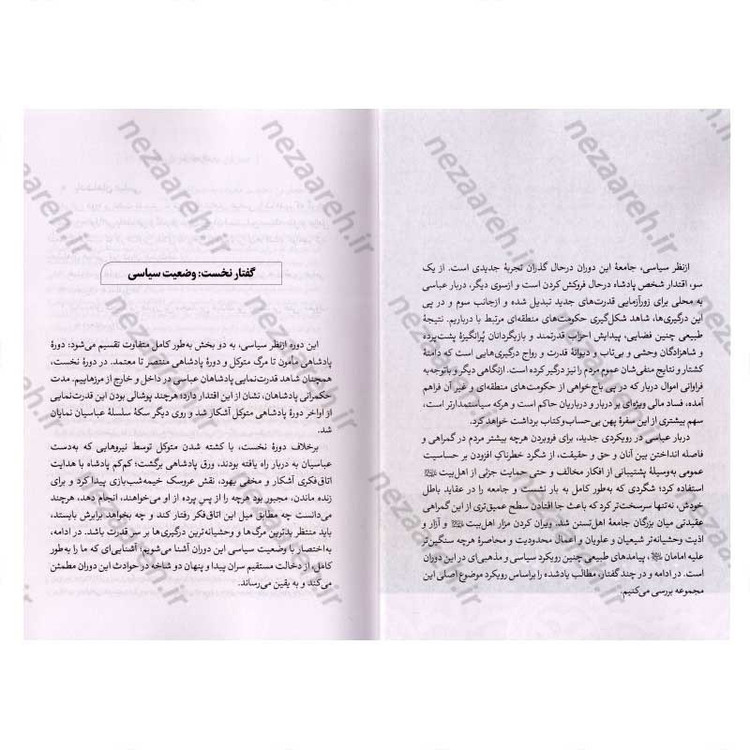 ازنظر سیاسی، جامعهٔ این دوران درحال گذران تجربهٔ جدیدی است. از یک
سو، اقتدار شخص پادشاه درحال فروکش کردن است و ازسوی دیگر، دربار عباسی
به محلی برای زورآزمایی قدرت‌های جدید تبدیل شده و ازجانب سوم و در پی
این درگیری‌ها، شاهد شکل‌گیری حکومت‌های منطقه‌ای مرتبط با درباریم. نتیجهٔ
طبیعی چنین فضایی، پیدایش احزاب قدرتمند و بازیگردانان پُرانگیزهٔ پشت‌پرده
و شاهزادگان وحشی و بی‌تاب و دیوانهٔ قدرت و رواج درگیری‌هایی است که دامنهٔ
کشتار و نتایج منفی‌شان عموم مردم را نیز درگیر کرده است. ازنگاهی دیگر و باتوجه‌به
فراوانی اموال دربار که در پی باج‌خواهی از حکومت‌های منطقه‌ای و غیر آن فراهم
آمده، فساد مالی ویژه‌ای بر دربار و درباریان حاکم است و هرکه سیاستمدارتر است،
سهم بیشتری از این سفرهٔ پهن بی‌حساب‌وکتاب برداشت خواهد کرد.
دربار عباسی در رویکردی جدید، برای فروبردن هرچه بیشتر مردم در گمراهی و
فاصله انداختن بین آنان و حق و حقیقت، از شگرد خطرناکِ افزودن بر حساسیت
عمومی به‌وسیلهٔ پشتیبانی از افکار مخالف و حتی حمایت جزئی از اهل‌بیت
استفاده کرد؛ شگردی که به‌طور کامل به بار نشست و جامعه را در عقاید باطل
خودش، نه‌تنها سرسخت‌تر کرد که باعث جا افتادن سطح عمیق‌تری از این گمراهی
عقیدتی میان بزرگان جامعهٔ اهل‌تسنن شد. ویران کردن مزار اهل‌بیت و آزار و
اذیت وحشیانه‌تر شیعیان و علویان و اعمال محدودیت و محاصرهٔ هرچه سنگین‌تر
علیه امامان، پیامدهای طبیعی چنین رویکرد سیاسی و مذهبی‌ای در این دوران
است. در ادامه و در چند گفتار، مطالب یادشده را براساس رویکرد موضوع اصلی این
مجموعه بررسی می‌کنیم.
گفتار نخست: وضعیت سیاسی
این دوره ازنظر سیاسی، به دو بخش به‌طور کامل متفاوت تقسیم می‌شود: دورهٔ
پادشاهی مأمون تا مرگ متوکل و دورهٔ پادشاهی منتصر تا معتمد. در دورهٔ نخست،
همچنان شاهد قدرت‌نمایی پادشاهان عباسی در داخل و خارج از مرزهاییم. مدت
حکمرانی پادشاهان، نشان از این اقتدار دارد؛ هرچند پوشالی بودن این قدرت‌نمایی
از اواخر دورهٔ پادشاهی متوکل آشکار شد و روی دیگر سکهٔ سلسلهٔ عباسیان نمایان
شد.
برخلاف دورهٔ نخست، با کشته شدن متوکل توسط نیروهایی که به‌دست
عباسیان به دربار راه یافته بودند، ورق پادشاهی برگشت؛ کم‌کم پادشاه با هدایت
اتاق‌فکری آشکار و مخفی یهود، نقش عروسک خیمه‌شب‌بازی پیدا کرد و برای
زنده ماندن، مجبور بود هرچه را از پس پرده از او می‌خواهند، انجام دهد، هرچند
می‌دانست چه مطابق میل این اتاق‌فکر رفتار کند و چه بخواهد برابرش بایستد،
باید منتظر بدترین مرگ‌ها و وحشیانه‌ترین درگیری‌ها بر سر قدرت باشد. در ادامه،
به‌اختصار با وضعیت سیاسی این دوران آشنا می‌شویم؛ آشنایی‌ای که ما را به‌طور
کامل، از دخالت مستقیم سران پیدا و پنهان دو شاخه در حوادث این دوران مطمئن
می‌کند و به یقین می‌رساند.
nezaareh.ir
nezaareh.ir
nezaareh.ir
nezaareh.ir
nezaareh.ir
nezaareh.ir
nezaareh.ir
nezaareh.ir
nezaareh.ir
nezaareh.ir
nezaareh.ir
nezaareh.ir